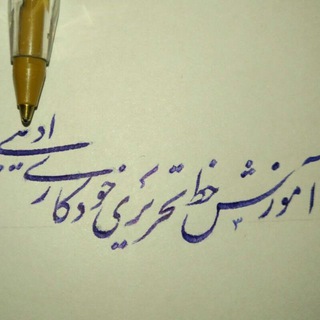 آموزش خط تحریری خودکاری ادیبی